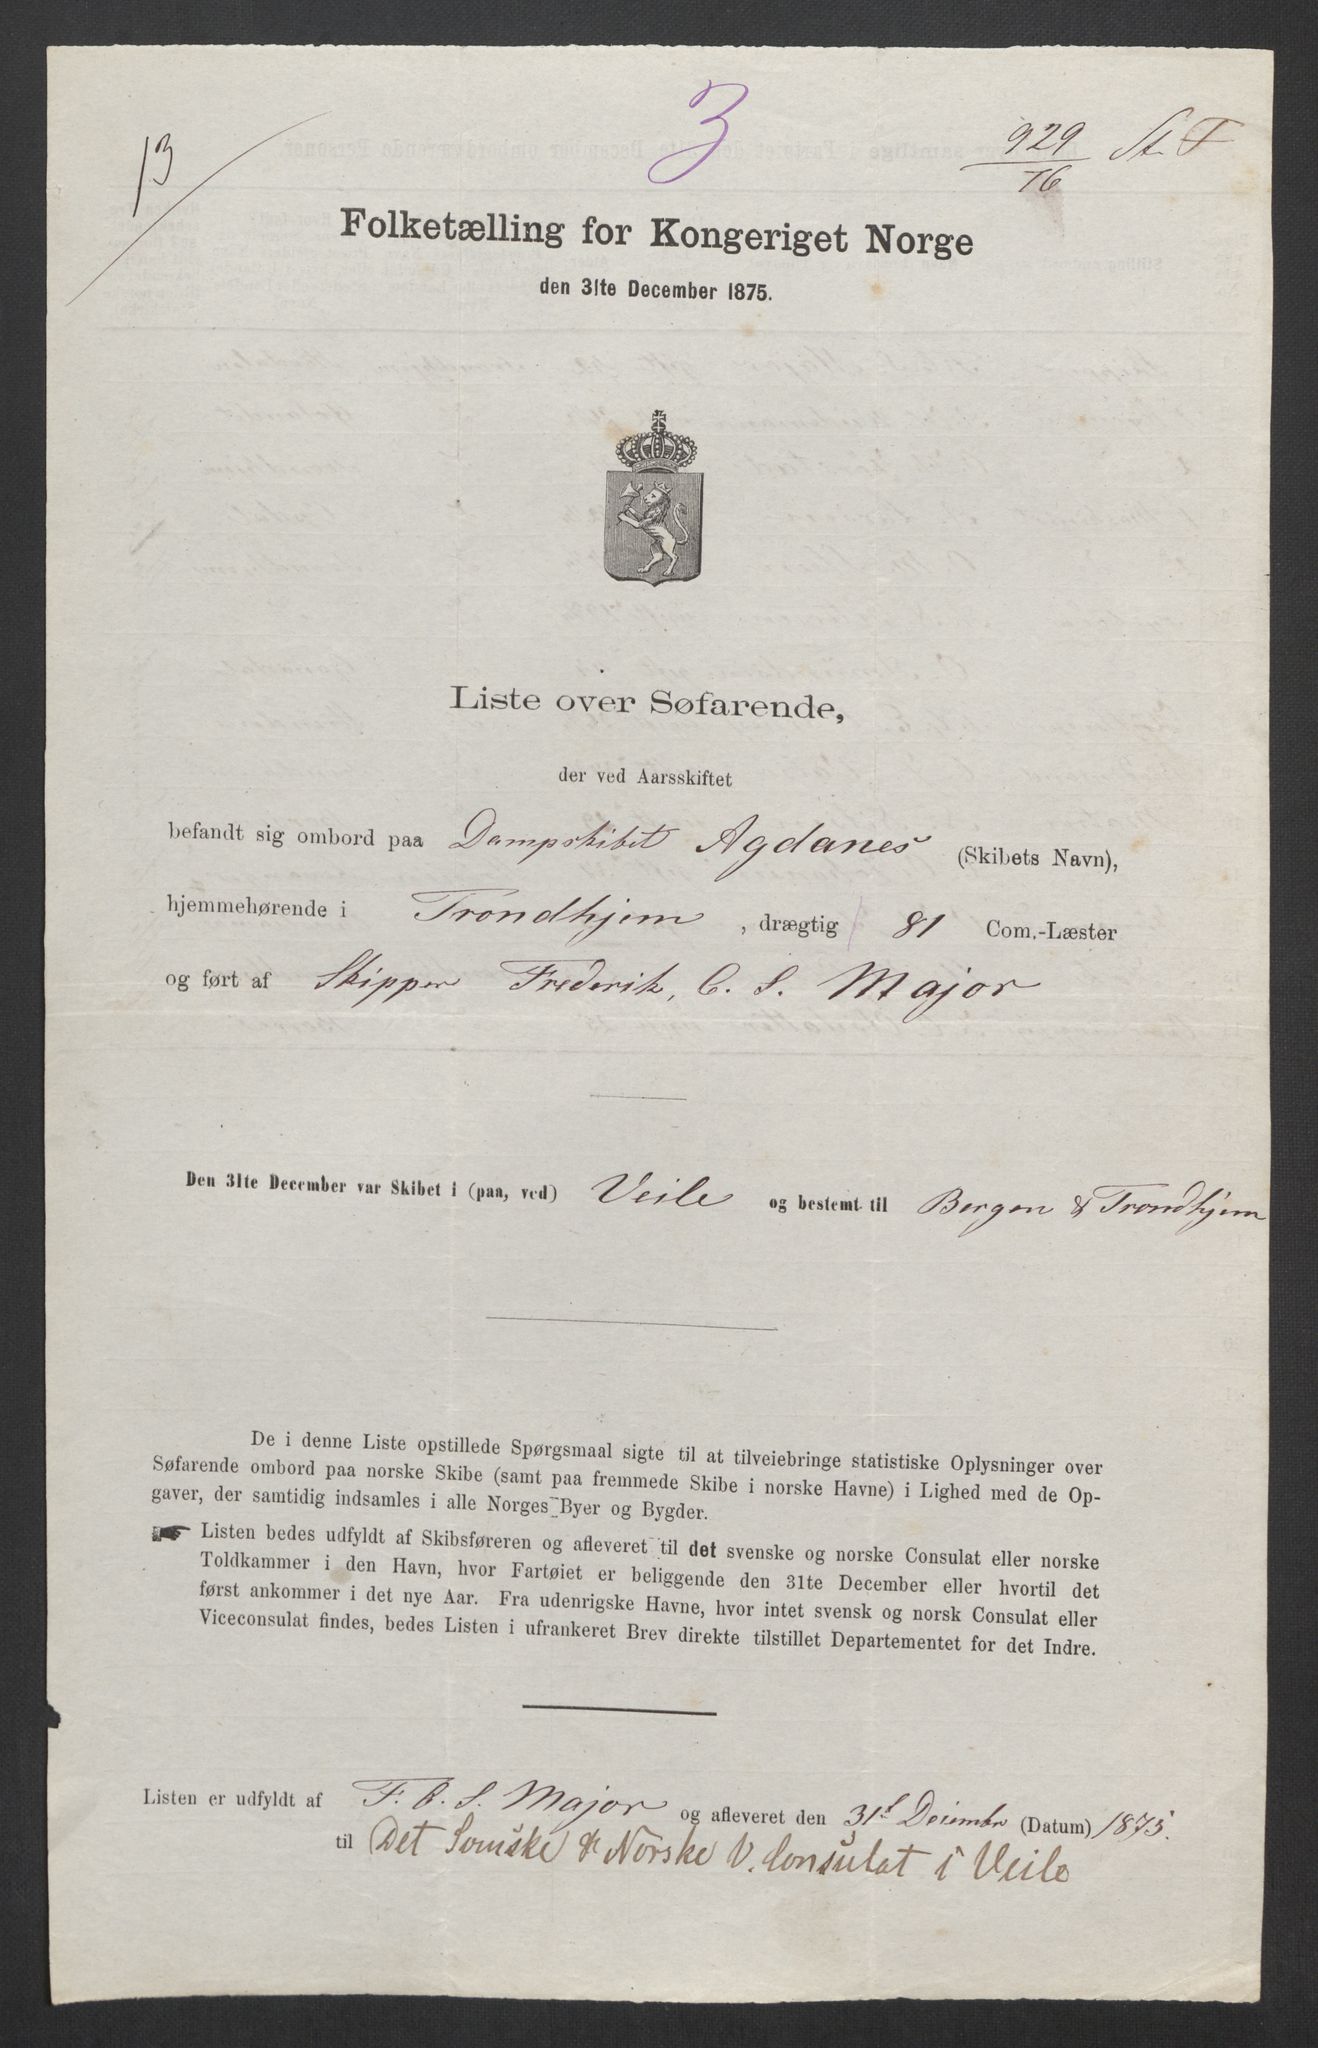 13
3
929
76
St. T
Folketælling for Kongeriget Norge
den 31te December 1875.
Liste over Søfarende,
der ved Aarsskiftet
befandt sig ombord paa Dampskibet Agdanes (Skibets Navn),
hjemmehørende i Trondhjem, drægtig 81 Com.-Læster
og ført af Skipper Frederik, C. S. Major
Den 31te December var Skibet i (paa, ved) Veile og bestemt til Bergen & Trondhjem
De i denne Liste opstillede Spørgsmaal sigte til at tilveiebringe statistiske Oplysninger over
Søfarende ombord paa norske Skibe (samt paa fremmede Skibe i norske Havne) i Lighed med de Op-
gaver, der samtidig indsamles i alle Norges Byer og Bygder.
Listen bedes udfyldt af Skibsføreren og afleveret til det svenske og norske Consulat eller norske
Toldkammer i den Havn, hvor Fartøiet er beliggende den 31te December eller hvortil det
først ankommer i det nye Aar. Fra udenrigske Havne, hvor intet svensk og norsk Consulat eller
Viceconsulat findes, bedes Listen i ufrankeret Brev direkte tilstillet Departementet for det Indre.
Listen er udfyldt af F. C. S. Major og afleveret den 31t Decembr (Datum) 1875.
til Det Svenske & Norske V. Consulat i Veile